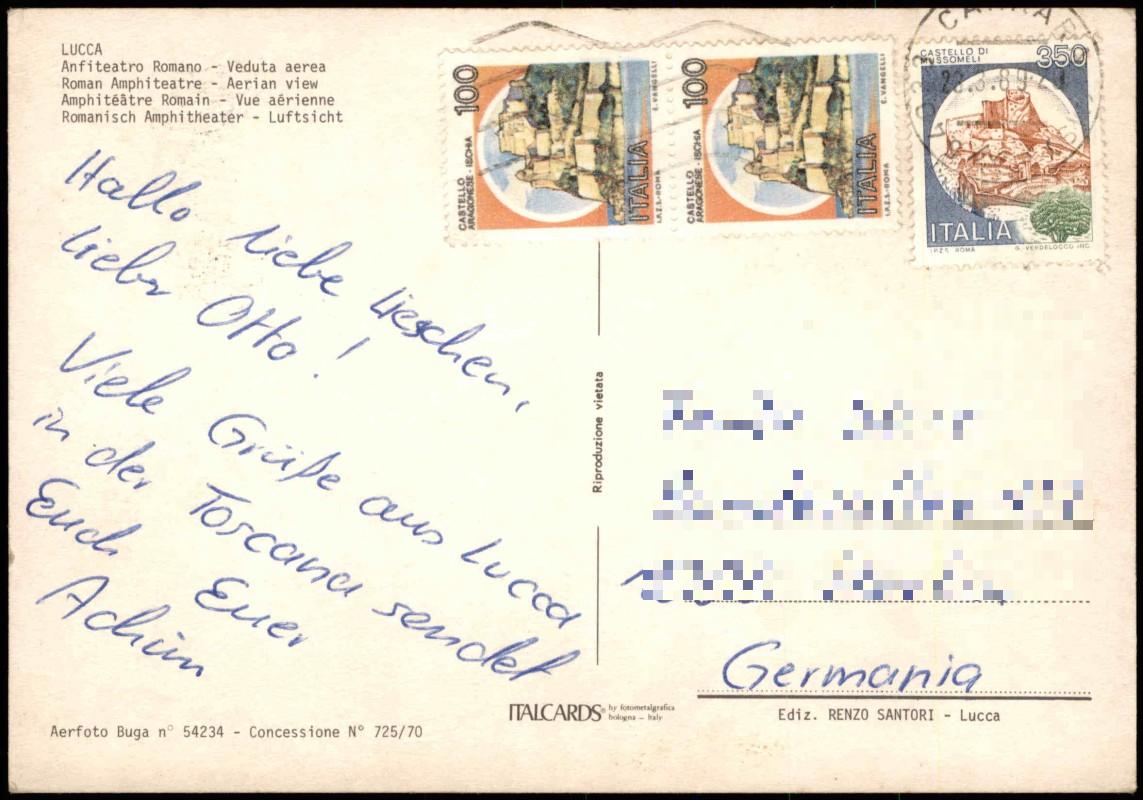 LUCCA
Anfiteatro Romano - Veduta aerea
Roman Amphiteatre - Aerian view
Amphitéâtre Romain - Vue aérienne
Romanisch Amphitheater - Luftsicht
100
CASTELLO
ARAGONESE - ISCHIA
ITALIA
I.P.Z.S. - ROMA
E. VANGELLI
100
CASTELLO
ARAGONESE - ISCHIA
ITALIA
I.P.Z.S. - ROMA
E. VANGELLI
CASTELLO DI
MUSSOMELI
350
ITALIA
I.P.Z.S. ROMA
G. VERDELOCCO INC.
Hallo liebe Lieschen,
lieber Otto!
Viele Grüße aus Lucca
in der Toscana sendet
Euch Euer
Achim
Riproduzione vietata
Germania
ITALCARDS® by fotometalgrafica
bologna - Italy
Ediz. RENZO SANTORI - Lucca
Aerfoto Buga n° 54234 - Concessione N° 725/70